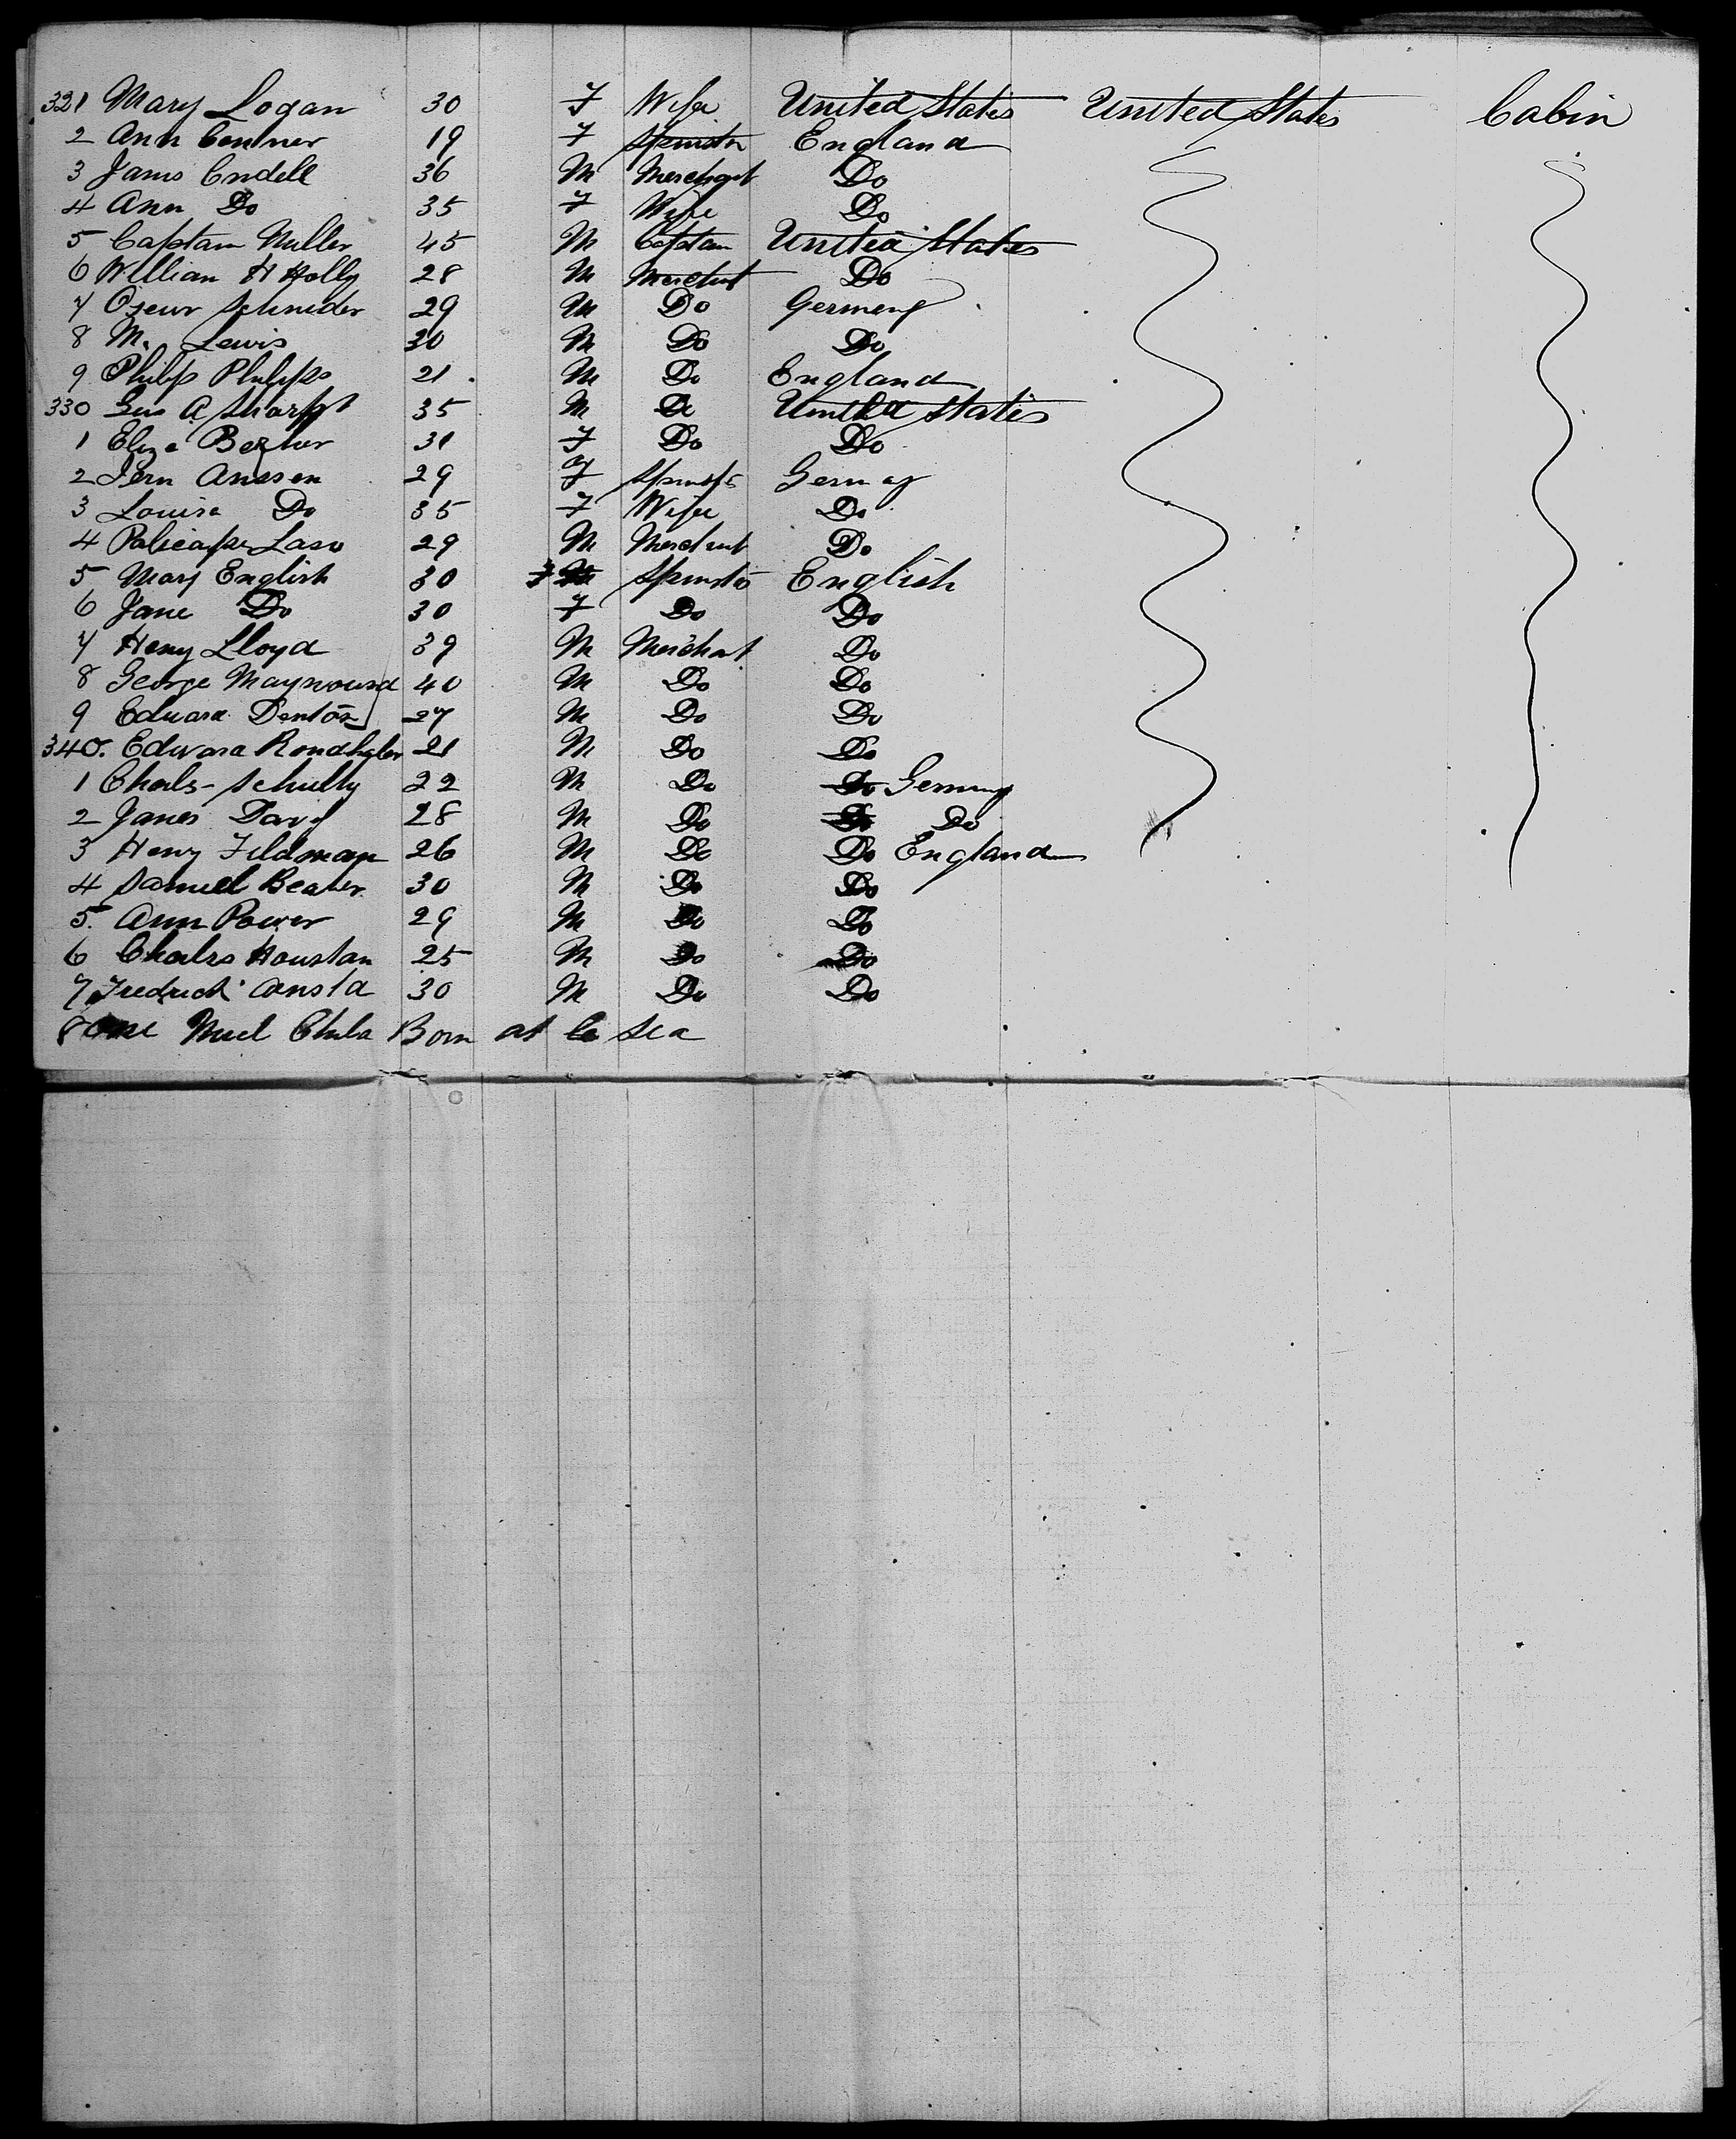 321 Mary Logan 30 F Wife United States United States Cabin
2 Ann Conner 19 F Spinster England
3 James Endell 36 M Merchant Do
4 Ann Do 35 F Wife Do
5 Captain Muller 45 M Captain United States
6 William H Holly 28 M Merchant Do
7 Schnider 29 M Do Germany
8 M. Lewis 30 M Do Do
9 Philip Philips 21 M Do England
330 Geo A. Sharpt 35 M Do United States
1 Eliza 31 F Do Do
2 Anssen 29 F Spinster Germany
3 Louisa Do 35 F Wife Do
4 Laso 29 M Merchant Do
5 Mary English 30 F Spinster English
6 Jane Do 30 F Do Do
7 Henry Lloyd 39 M Merchant Do
8 George 40 M Do Do
9 Edward Denton 27 M Do Do
340. Edward 21 M Do Do
1 Charls Schully 22 M Do Do Germany
2 James Davy 28 M Do Do Do
3 Henry Fildman 26 M Do Do England
4 Samuel Beater 30 M Do Do
5. Ann Power 29 M Do Do
6 Charles Houstan 25 M Do Do
7 Fredrick 30 M Do Do
8 One Child Born at Sea